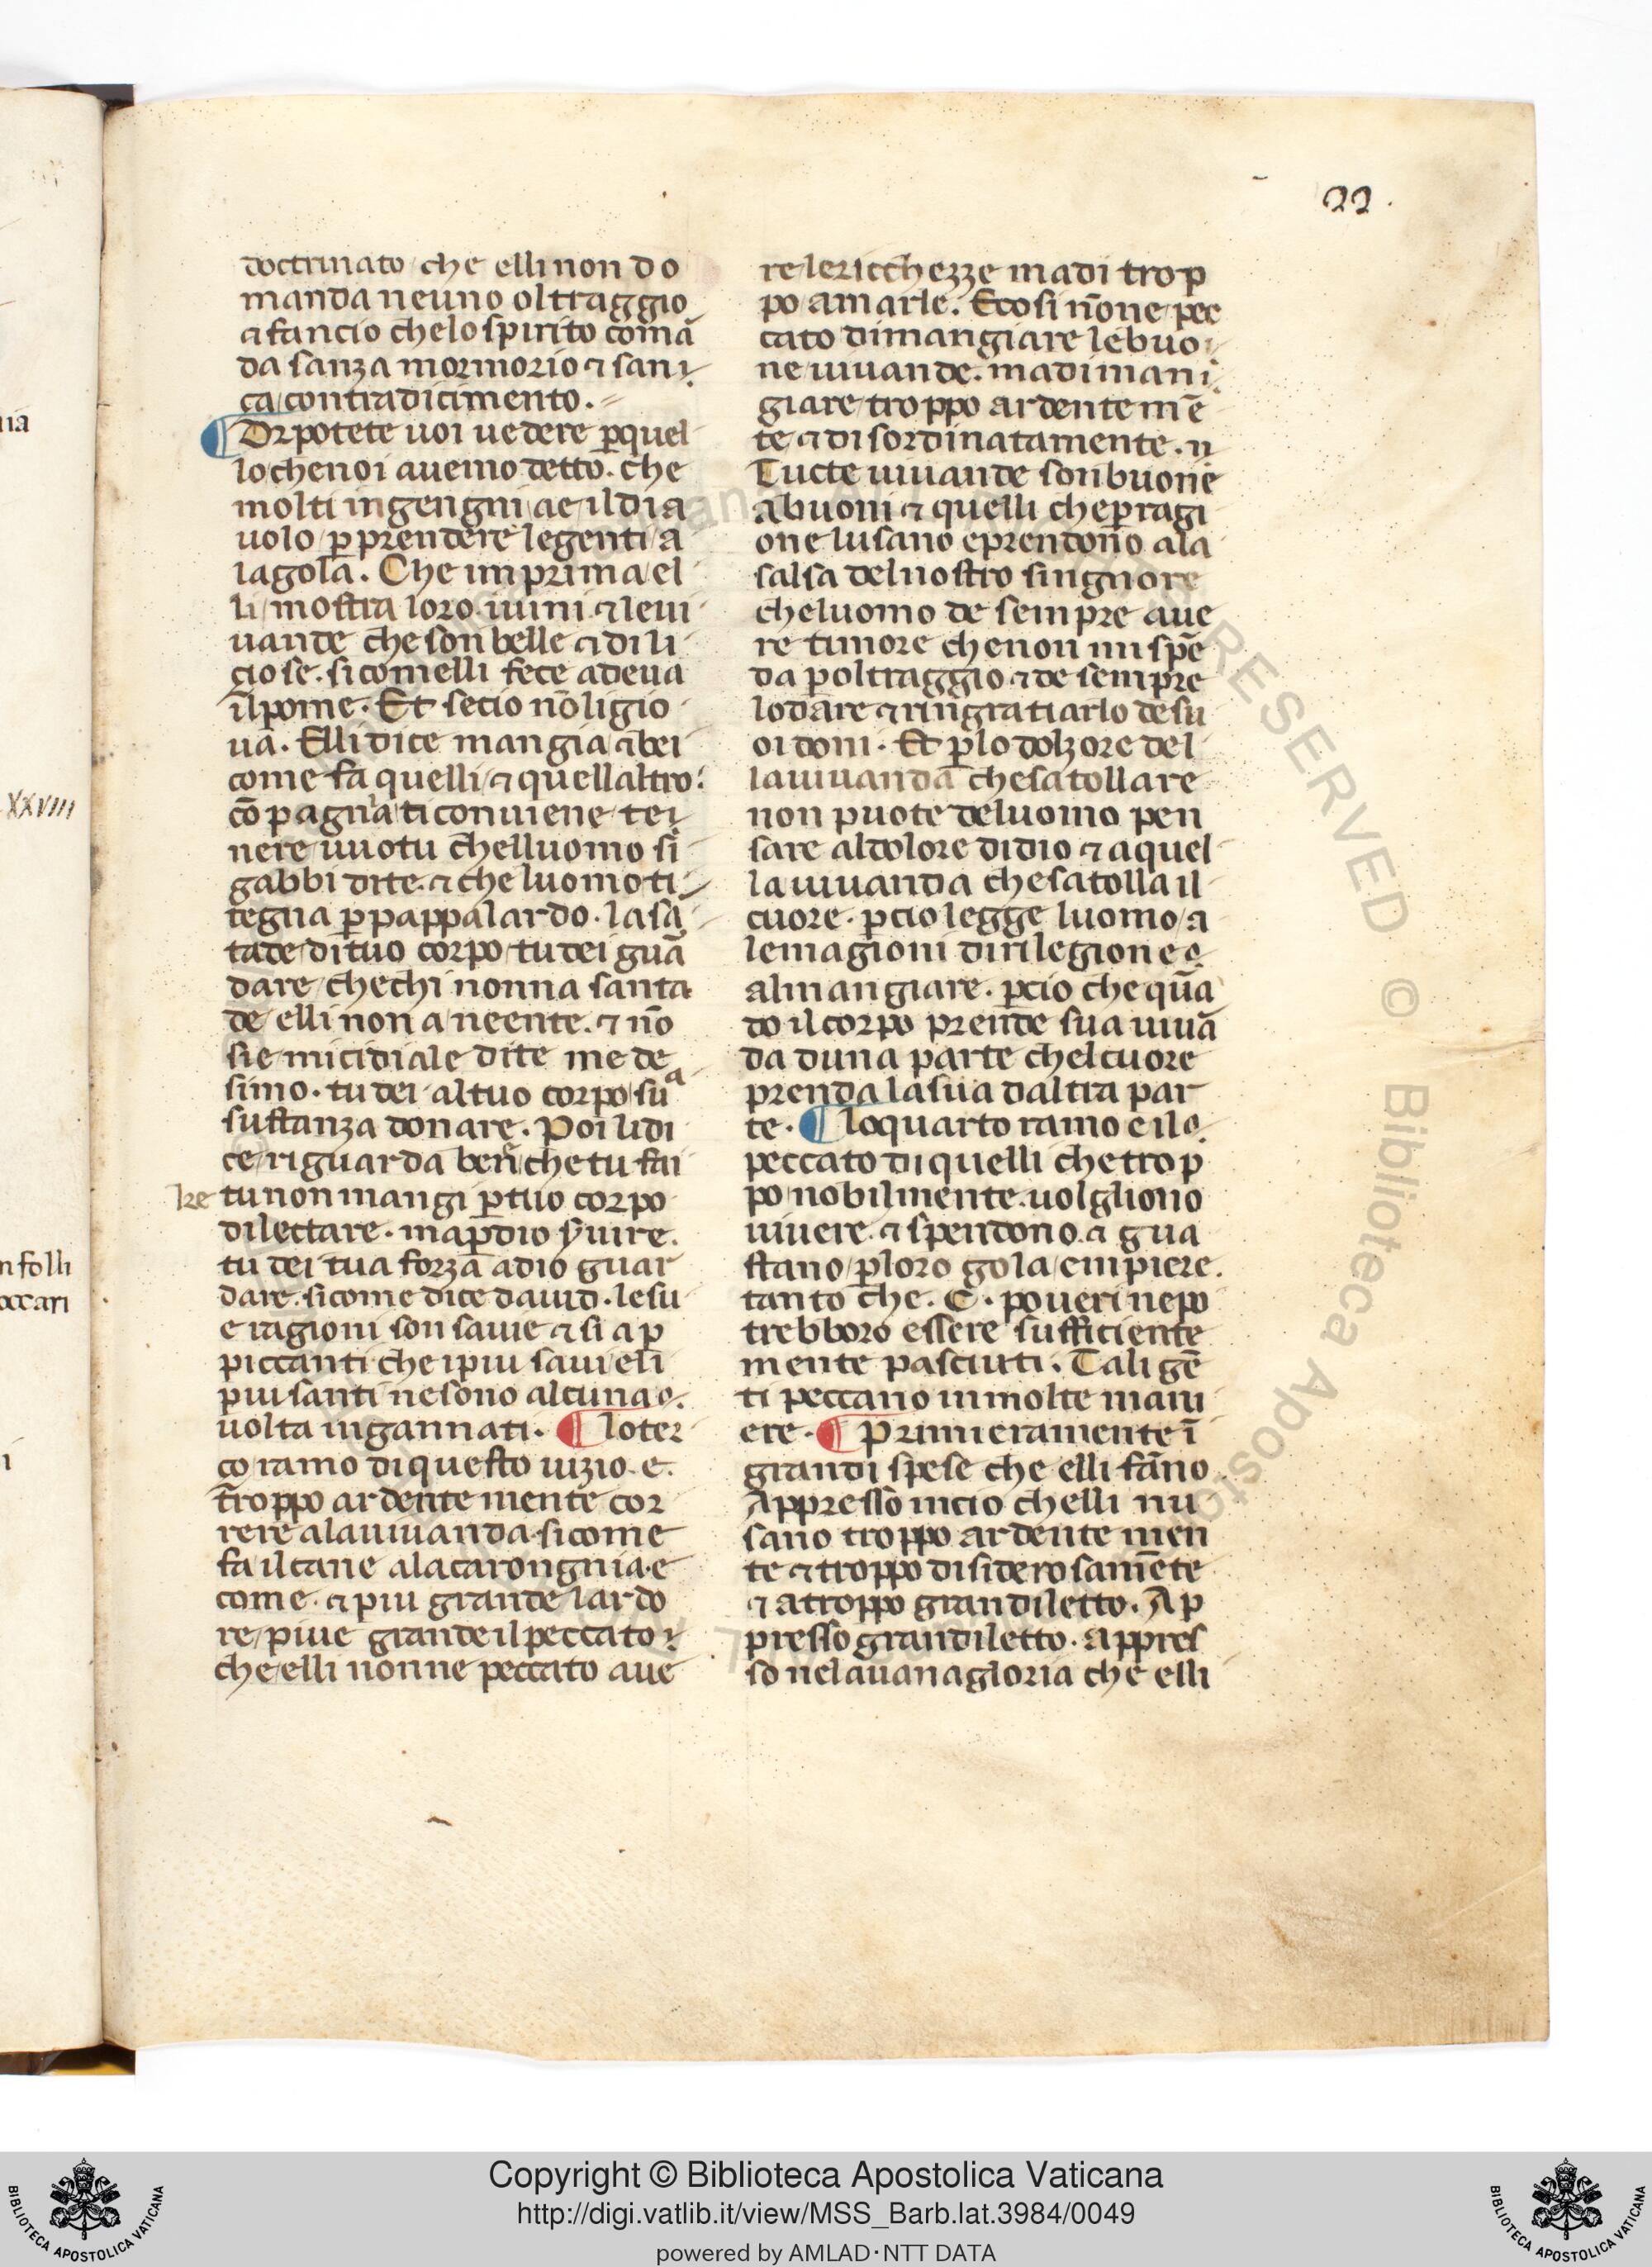 22.
doctrinato che elli non do
manda neuno oltraggio
⁊ fancio chelo spirito comā
da sanza mormorio ⁊ san
ça contradicimento.
¶ Or potete uoi uedere ꝑquel
lo che noi auemo detto. che
molti ingengni ae il dia
uolo ꝑ prendere le genti a
la gola. Che imprima el
li mostra loro iuini ⁊ leui
uande che son belle ⁊ dili
ciose. sicomelli fece ad eua
il pome. Et secio nō li gio
ua. Elli dice mangia ⁊ bei
come fa quelli ⁊ quellaltro.
cōpagnia ti conuiene te
nere uuotu chelluomo si
gabbi dite. ⁊ che luomo ti
tegna ꝑ pappalardo. la sa
tade di tuo corpo tu dei guā
dare che chi nonna santa
de elli non a neente. ⁊ nō
sie micidiale dite mede
simo. tu dei al tuo corpo sua
sustanza donare. Poi li di
ce riguarda bene che tu fai
tu non mangi ꝑ tuo corpo
re
dilectare. ma ꝑ dio ẜuire.
tu dei tua forza a dio guar
dare. sicome dice dauid. le su
e ragioni son sauie ⁊ si ap
piccanti che ipiu saui eli
piu santi ne sono alcuna
uolta ingannati. ¶ lo ter
ço ramo di questo uizio. e.
troppo ardente mente cor
rere ala uiuanda sicome
fa il cane ala carongnia. e
come. ⁊ piu grande lardo
re piue grande il peccato
che elli nonne peccato aue
re le ricchezze ma di trop
po amarle. Ecosi nōne pec
cato di mangiare le buo
ne uiuande. ma di man
giare troppo ardente mē
te ⁊ disordinatamente.
Tucte uiuande son buone
abuoni ⁊ quelli che ꝑ ragi
one lusano e prendono ala
salsa del nostro singnore
che luomo de sempre aue
re timore che non mi spē
da ꝑ oltraggio ⁊ de sempre
lodare ⁊ ringratiarlo de su
oi doni. Et ꝑ lo dolzore del
la uiuanda che satollare
non puote de luomo pen
sare al dolore didio ⁊ a quel
la uiuanda che satolla il
cuore. ꝑcio legge luomo a
le magioni di rilegione
al mangiare. ꝑcio che quā
do il corpo prende sua uiuā
da duna parte chel cuore
prenda la sua daltra par
te. ¶ lo quarto ramo e il
peccato di quelli che trop
po nobilmente uolgliono
uiuere. ⁊ spendono. ⁊ gua
stano ꝑ loro gola empiere.
tanto che. C. poueri ne po
trebboro essere sufficiente
mente pasciuti. Tali gē
ti peccano in molte mani
ere. ¶ Primieramente ī
grandi spese che elli fāno
Appresso in cio chelli nu
sano troppo ardente men
te ⁊ troppo disiderosamēte
⁊ a troppo gran diletto. Ap
presso gran diletto. appres
so nela uana gloria che elli
XXVIII
n folli
Copyright © Biblioteca Apostolica Vaticana
http://digi.vatlib.it/view/MSS_Barb.lat.3984/0049
powered by AMLAD·NTT DATA
BIBLIOTECA APOSTOLICA VATICANA
BIBLIOTECA APOSTOLICA VATICANA